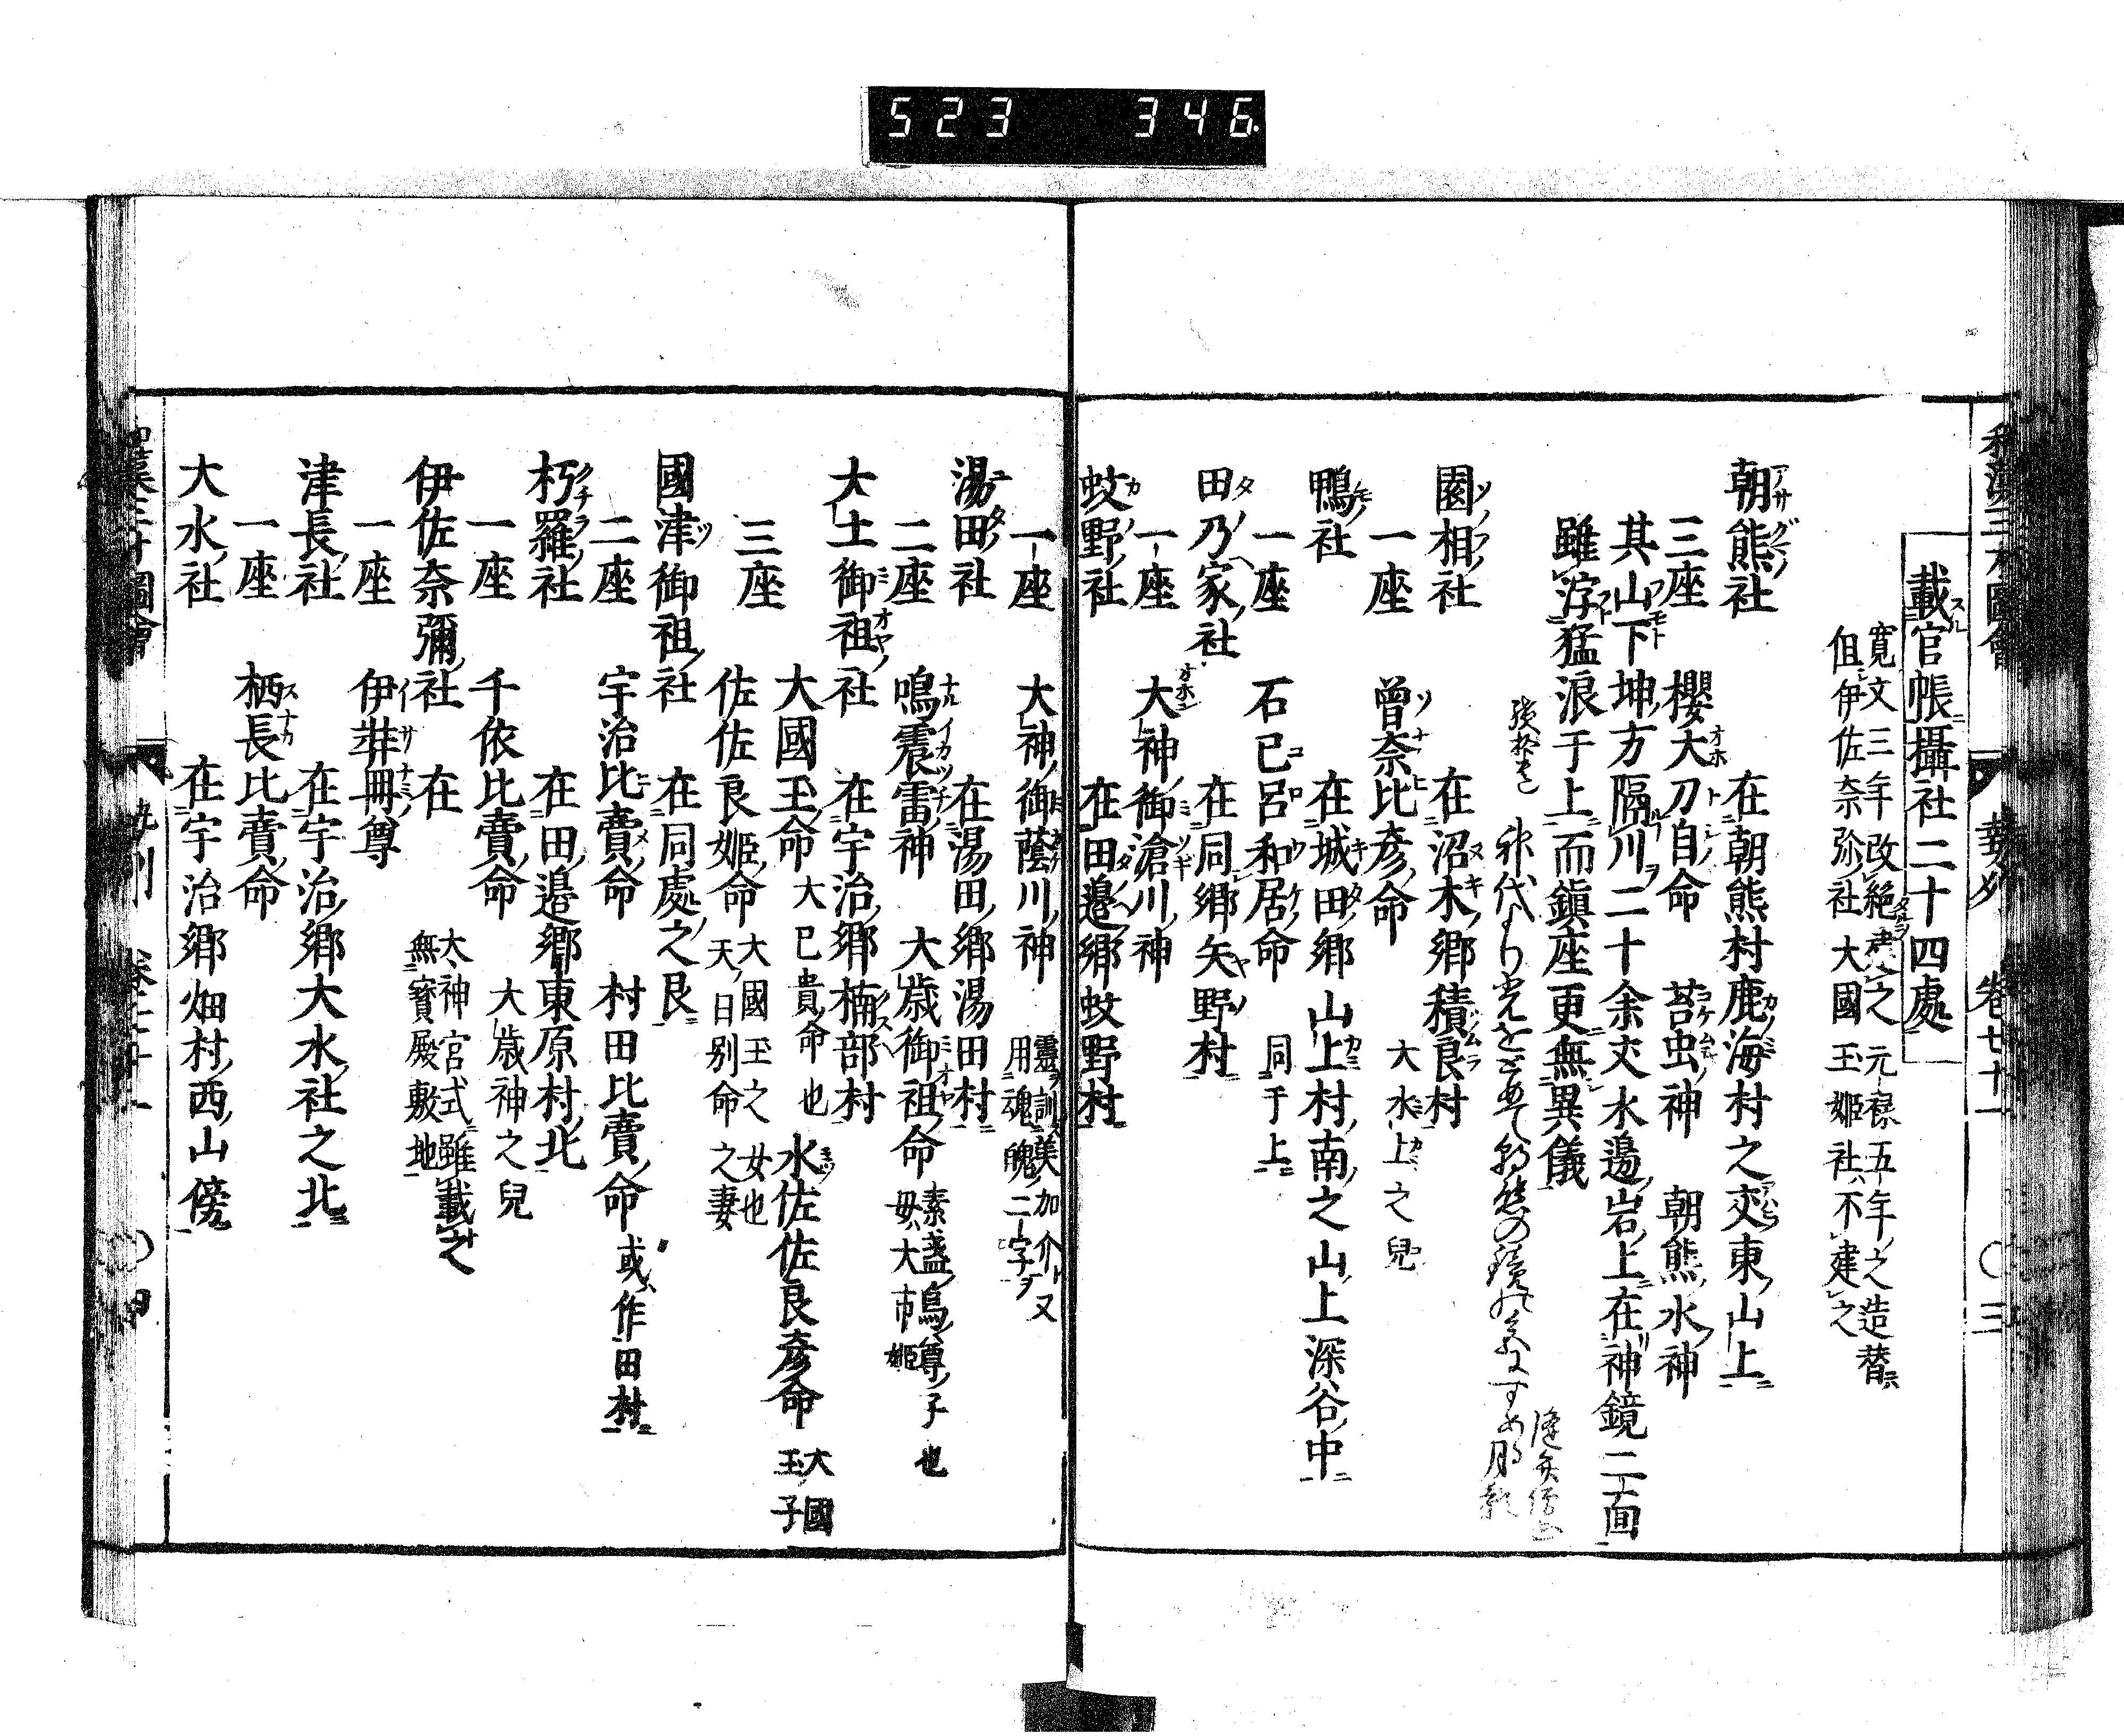 523 346
和漢三才圖會 勢州 卷七十一 〇三
載官帳攝社二十四處
寛文三年改絶建之元禄五年之造替
但伊佐奈弥社大國玉姫社不建之
朝熊社 在朝熊村鹿海村之交東山上
三座 櫻大刀自命 苔虫神 朝熊水神
其山下坤方隔川二十余丈水邉岩上在神鏡二面
雖浮猛浪于上而鎭座更無異儀
園相社 在沼木郷積良村
一座 曾奈比彦命 大水上之兒
鴨社 在城田郷山上村南之山上深谷中
一座 石已呂和居命 同于上
田乃家社 在同郷矢野村
一座 大神御滄川神
蚊野社 在田邉郷蚊野村
一座 大神御蔭川神 靈訓美加介又
用魂魄二字
湯田社 在湯田郷湯田村
二座 鳴震雷神 大歳御祖命 素盞烏尊子也
母大市姫
大土御祖社 在宇治郷楠部村
三座 大國玉命 大已貴命也 水佐佐良彦命 大國
玉子
佐佐良姫命 大國玉之女也
天日別命之妻
國津御祖社 在同處之艮
二座 宇治比賣命 村田比賣命 或作田村
朽羅社 在田邉郷東原村北
一座 千依比賣命 大歳神之兒
伊佐奈彌社 在 太神宮式雖載之
無寳殿敷地
一座 伊弉冊尊
津長社 在宇治郷大水社之北
一座 栖長比賣命
大水社 在宇治郷畑村西山傍